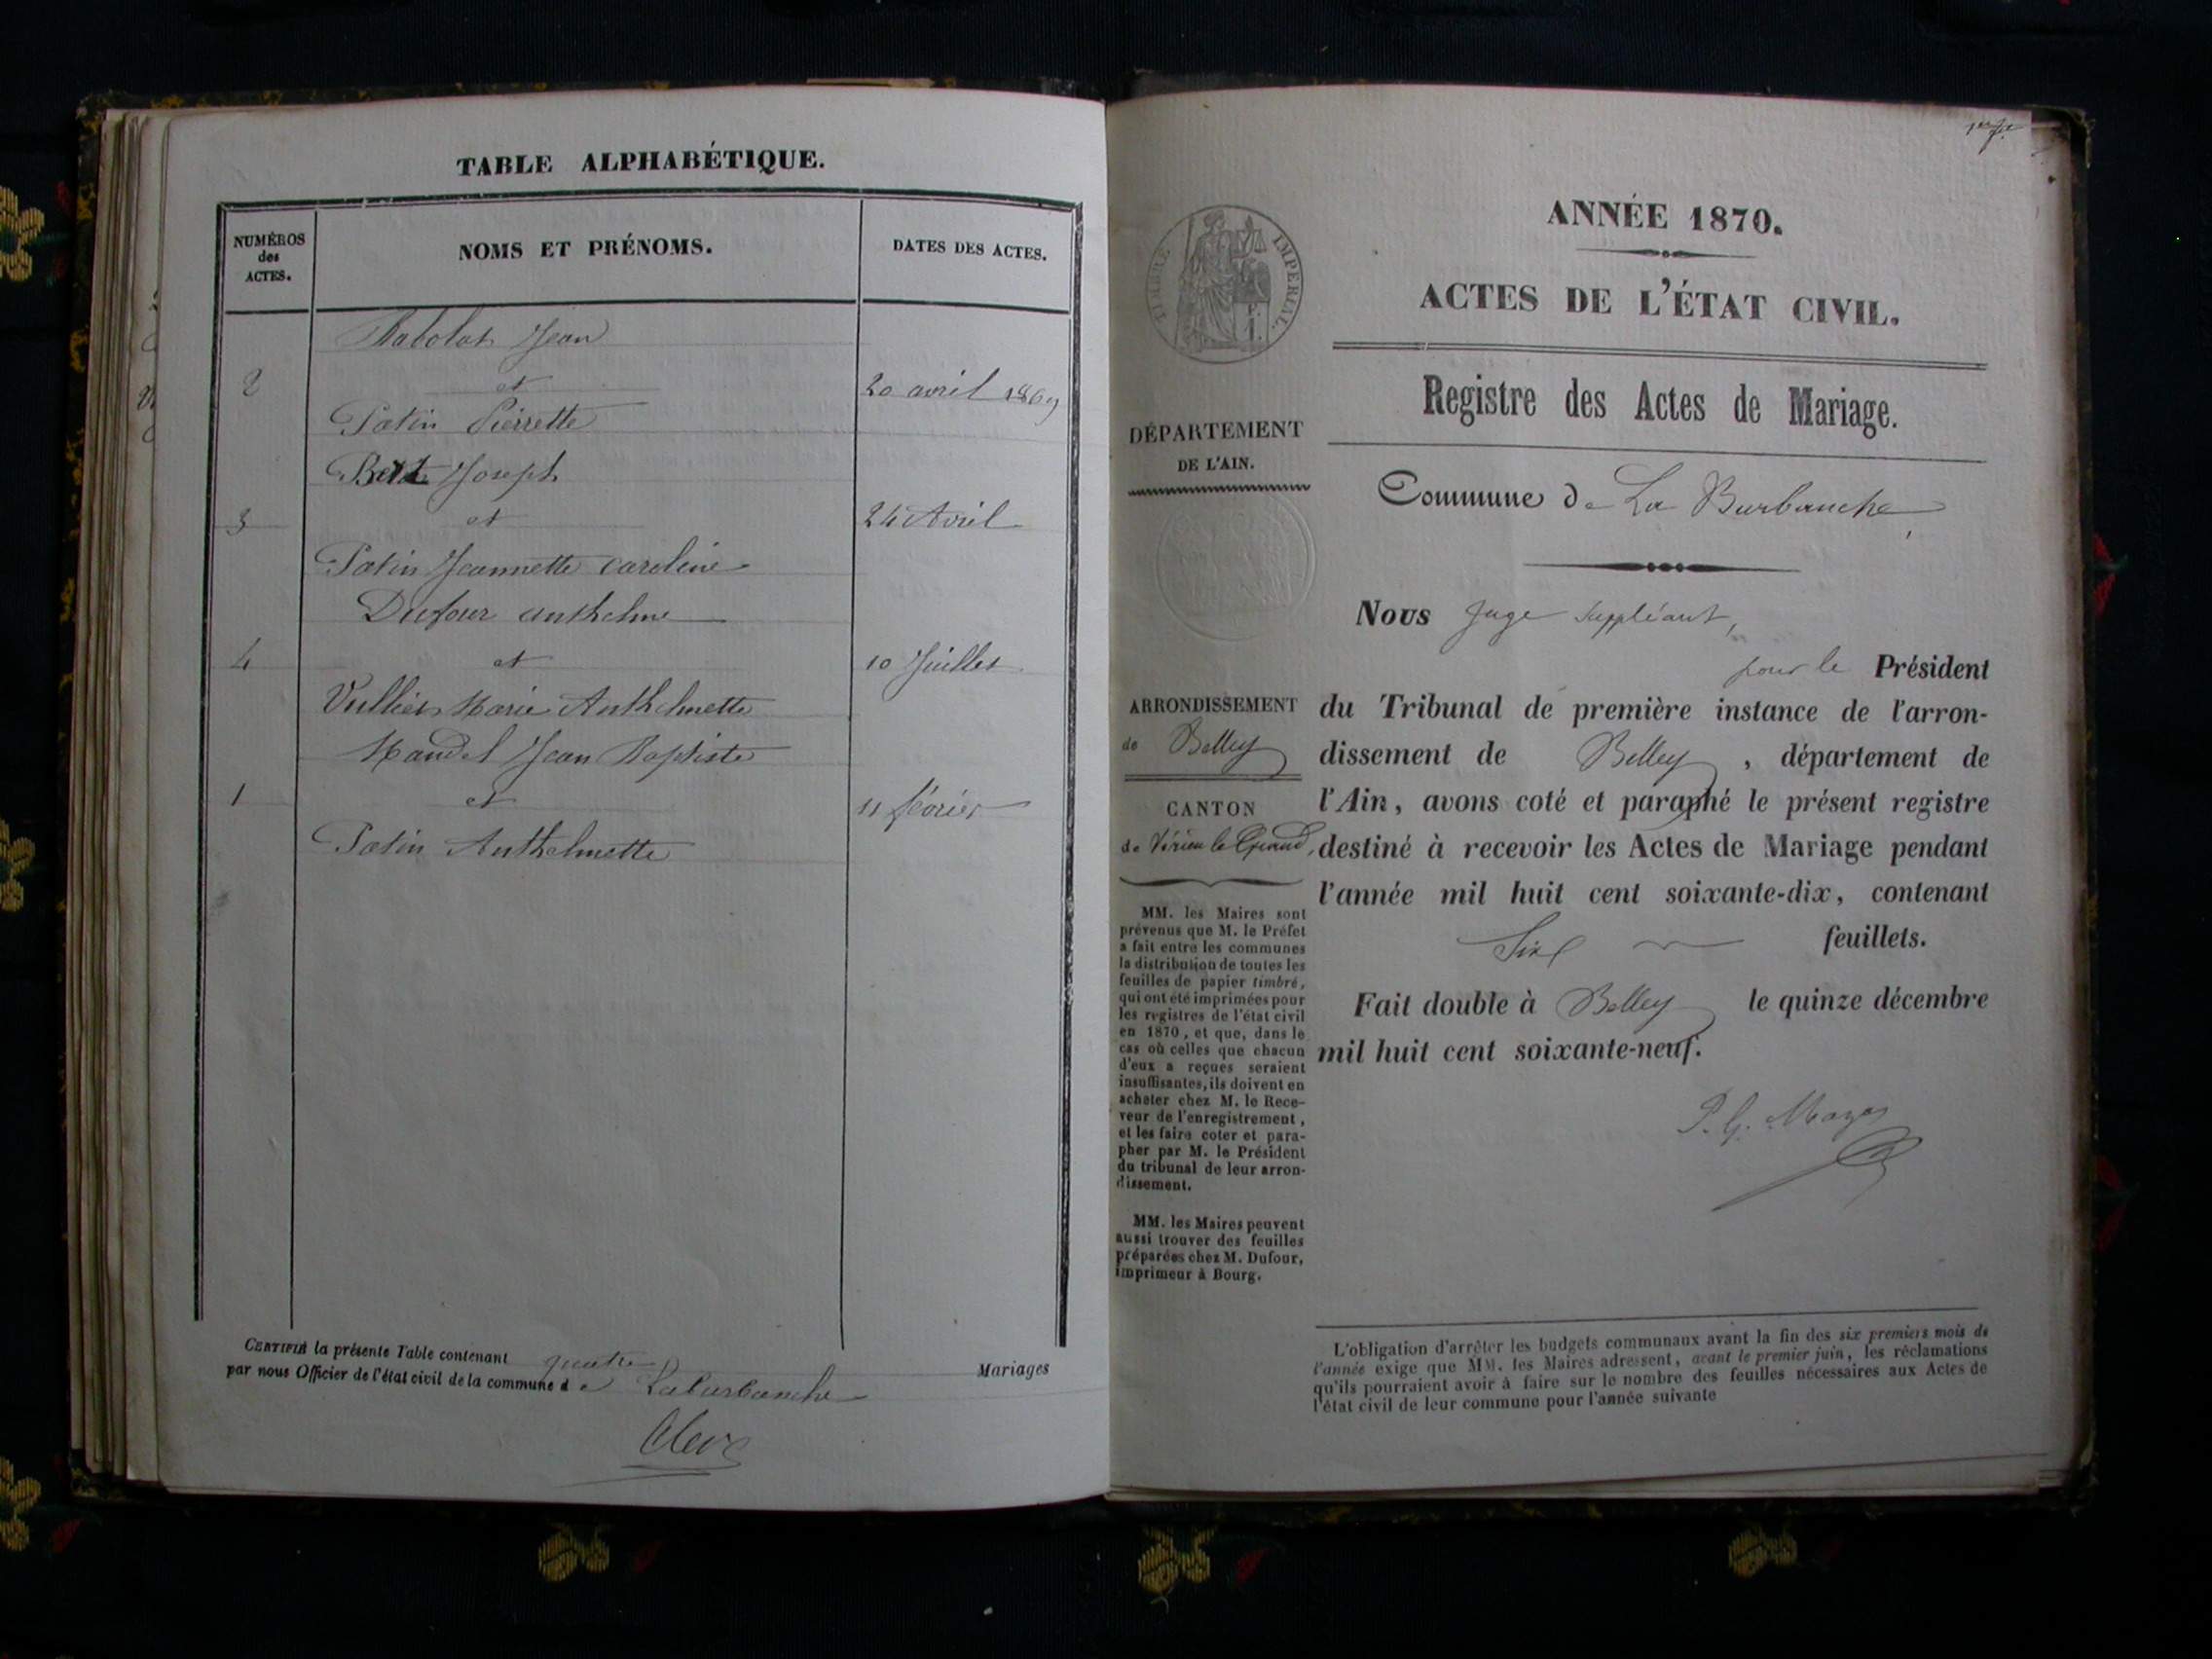 TABLE ALPHABÉTIQUE.
NUMÉROS
des
ACTES.
NOMS ET PRÉNOMS.
DATES DES ACTES.
Jean
2
et
20 avril 1869
Patin Pierrette
Joseph
3
et
24 Avril
Patin Jeannette caroline
Dufour anthelme
4
et
10 Juillet
Vulliet Marie Anthelmette
Mandel Jean Baptiste
1
et
11 février
Patin Anthelmette
CERTIFIÉ la présente Table contenant quatre Mariages
par nous Officier de l'état civil de la commune de Laburbanche
Clerc
1er f.
ANNÉE 1870.
ACTES DE L'ÉTAT CIVIL.
TIMBRE IMPERIAL.
Registre des Actes de Mariage.
DÉPARTEMENT
DE L'AIN.
Commune de La Burbanche
Nous Juge suppléant,
pour le Président
ARRONDISSEMENT
de Belley
CANTON
de Virieu le Grand,
du Tribunal de première instance de l'arron-
dissement de Belley, département de
l'Ain, avons coté et paraphé le présent registre
destiné à recevoir les Actes de Mariage pendant
l'année mil huit cent soixante-dix, contenant
Six feuillets.
Fait double à Belley le quinze décembre
mil huit cent soixante-neuf.
MM. les Maires sont
prévenus que M. le Préfet
a fait entre les communes
la distribution de toutes les
feuilles de papier timbré,
qui ont été imprimées pour
les registres de l'état civil
en 1870, et que, dans le
cas où celles que chacun
d'eux a reçues seraient
insuffisantes, ils doivent en
acheter chez M. le Rece-
veur de l'enregistrement,
et les faire coter et para-
pher par M. le Président
du tribunal de leur arron-
dissement.
MM. les Maires peuvent
aussi trouver des feuilles
préparées chez M. Dufour,
imprimeur à Bourg.
L'obligation d'arrêter les budgets communaux avant la fin des six premiers mois de
l'année exige que MM. les Maires adressent, avant le premier juin, les réclamations
qu'ils pourraient avoir à faire sur le nombre des feuilles nécessaires aux Actes de
l'état civil de leur commune pour l'année suivante